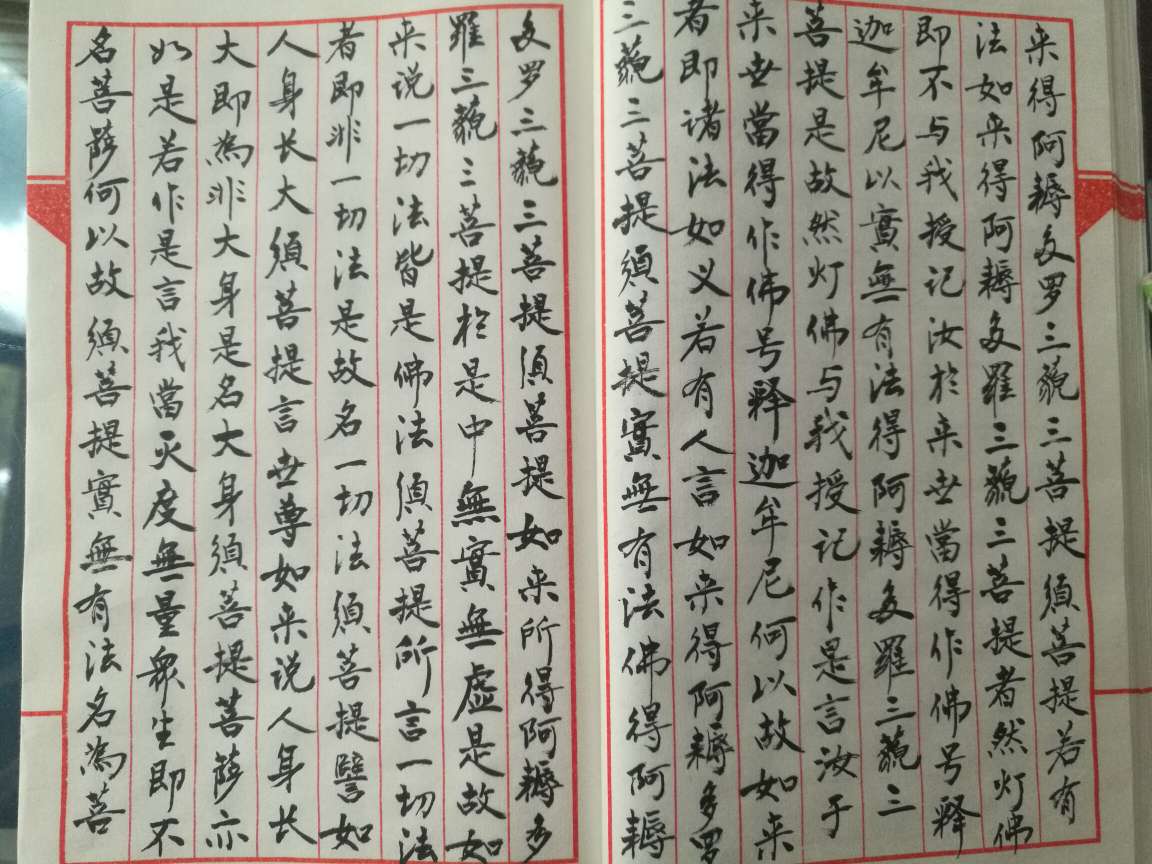 来得阿耨多罗三藐三菩提须菩提若有
法如来得阿耨多羅三藐三菩提者然灯佛
即不与我授记汝於来世當得作佛号释
迦牟尼以實無有法得阿耨多羅三藐三
菩提是故然灯佛与我授记作是言汝于
来世當得作佛号释迦牟尼何以故如来
者即诸法如义若有人言如来得阿耨多罗
三藐三菩提须菩提實無有法佛得阿耨
多罗三藐三菩提须菩提如来所得阿耨多
羅三藐三菩提於是中無實無虚是故如
来说一切法皆是佛法须菩提所言一切法
者即非一切法是故名一切法须菩提譬如
人身长大须菩提言世尊如来说人身长
大即為非大身是名大身须菩提菩薩亦
如是若作是言我當灭度無量眾生即不
名菩薩何以故须菩提實無有法名為菩